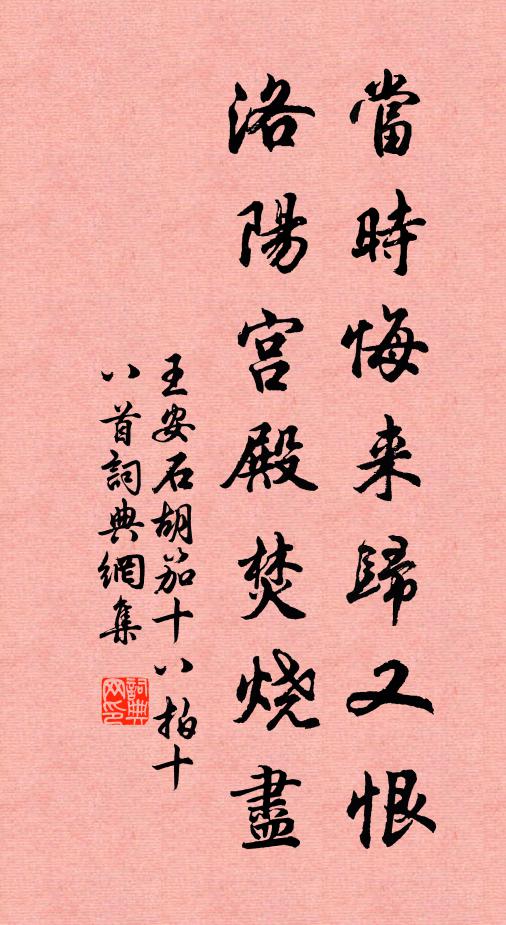 當時悔来歸又恨
洛陽宫殿焚烧盡
王安石胡笳十八拍十
八首詞典網集
詞典网印